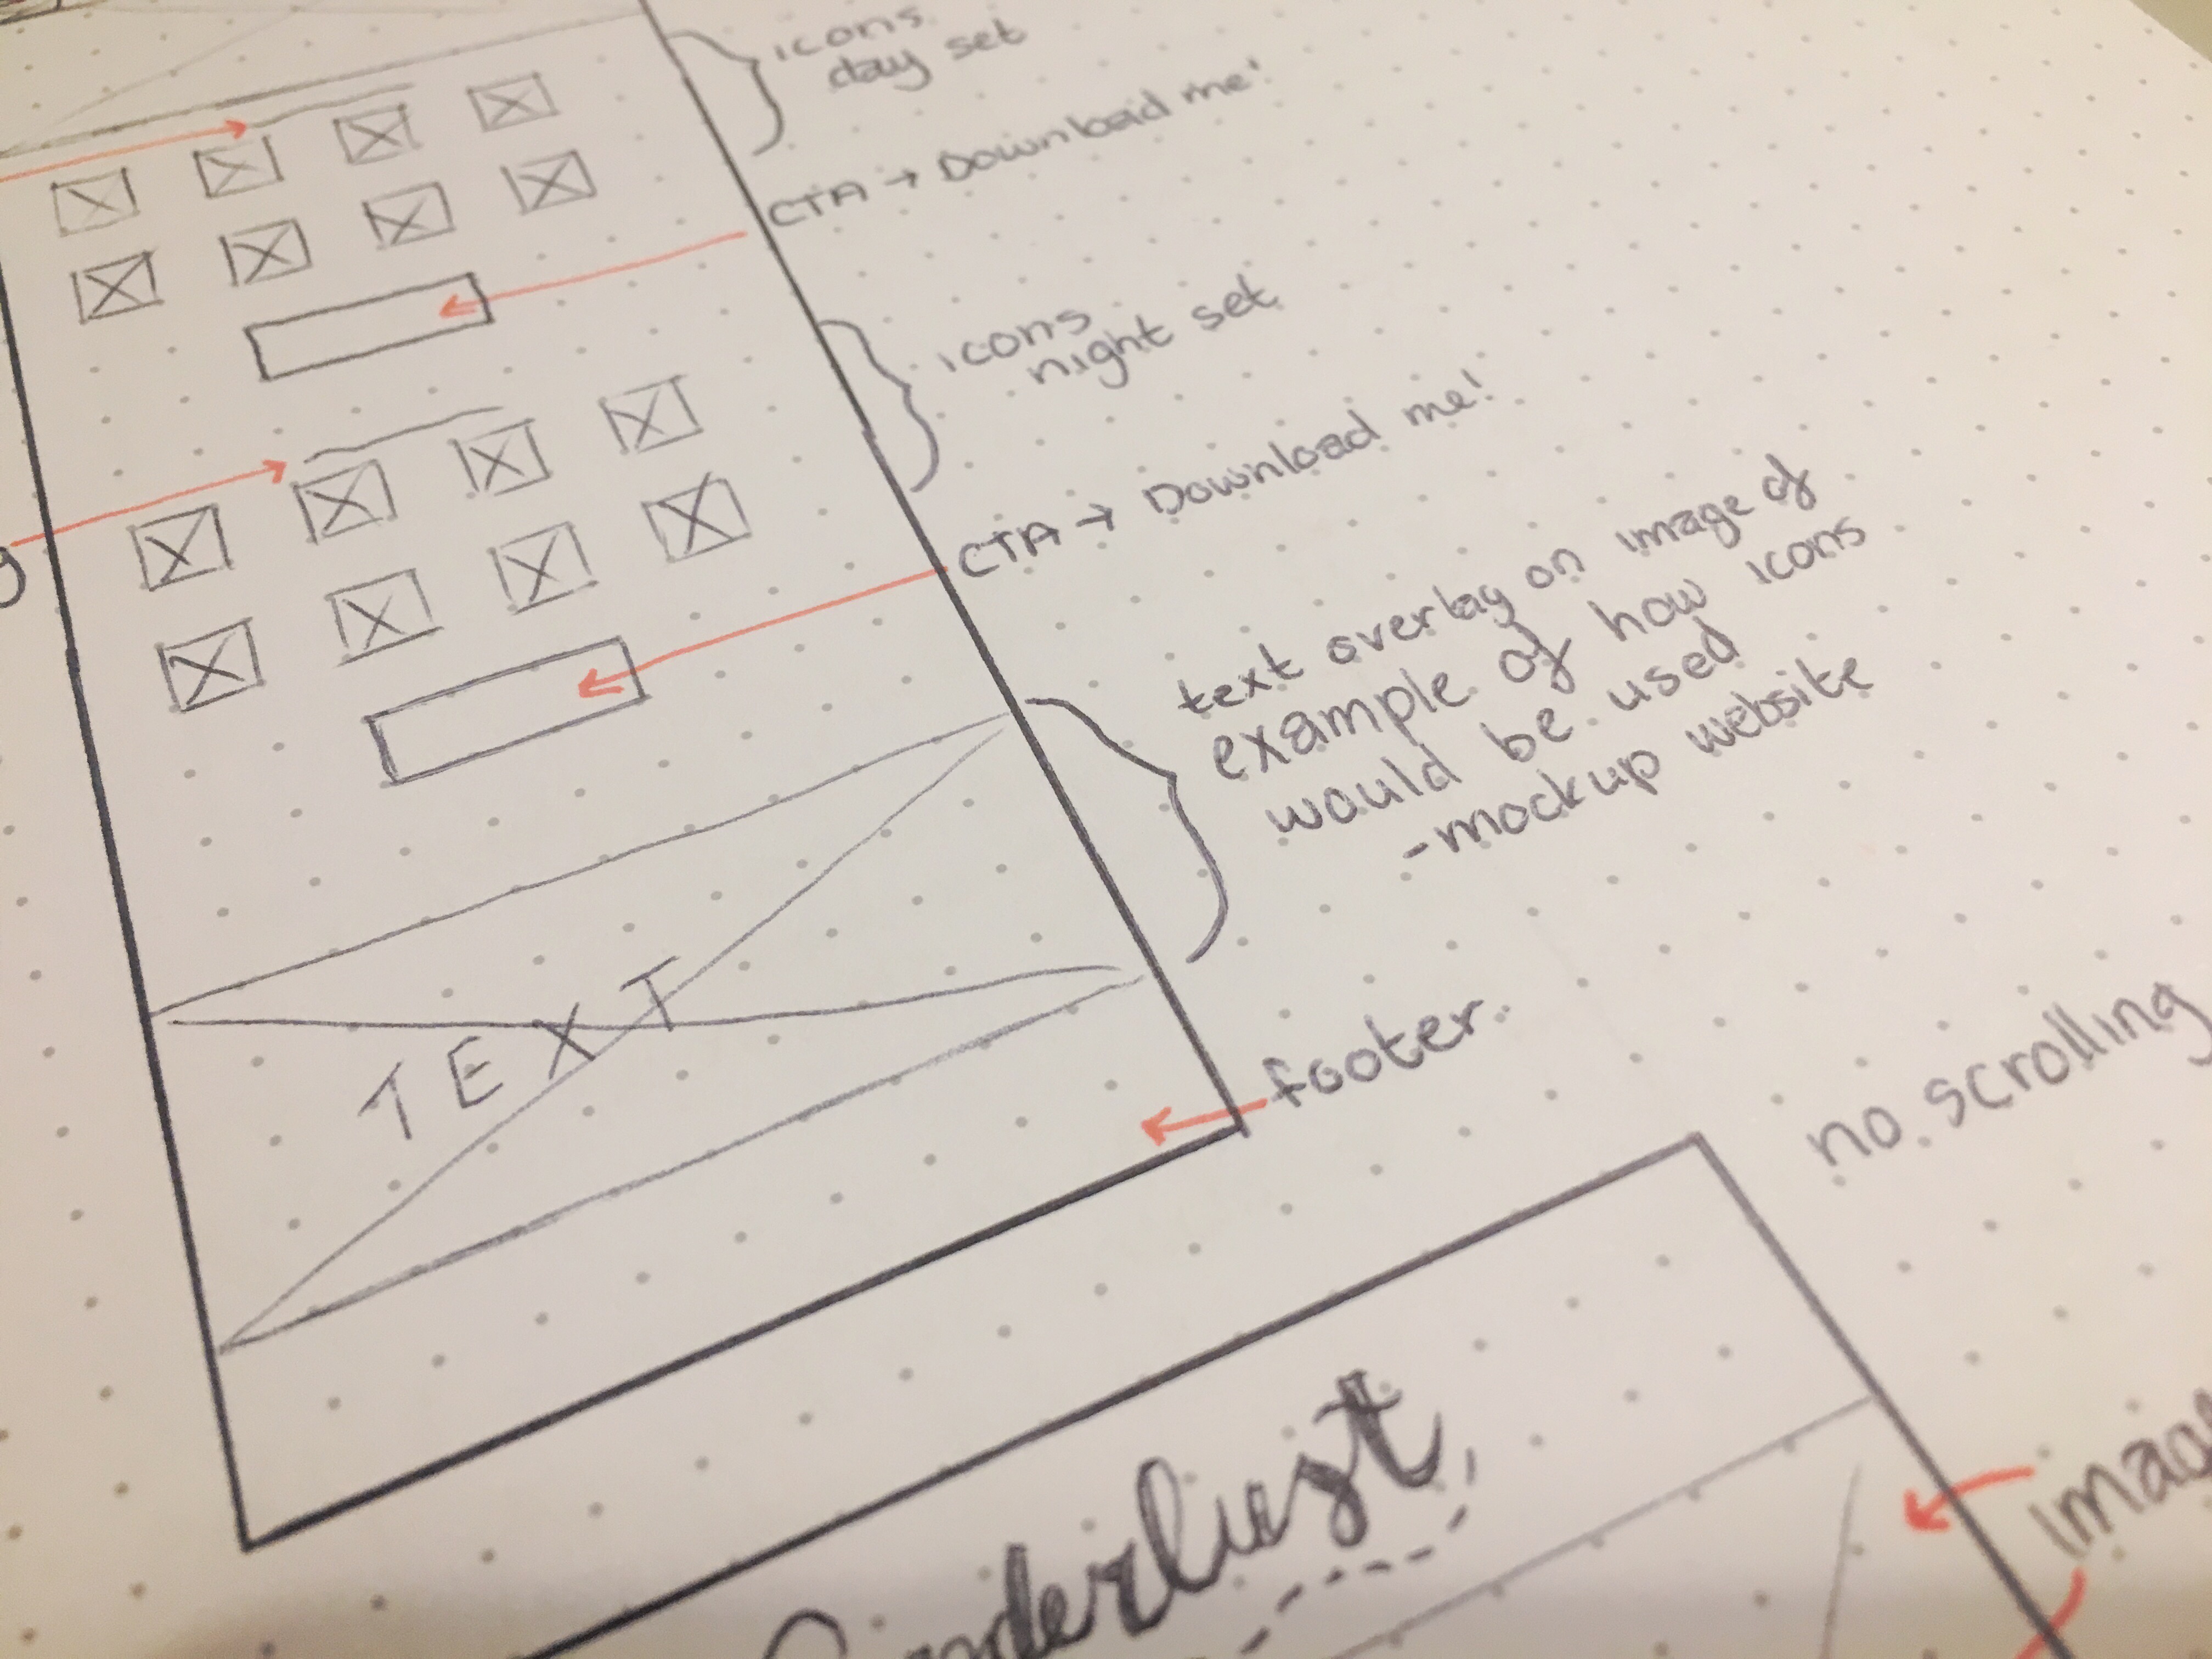 icons
day set
CTA → Download me!
icons
night set
CTA → Download me!
text overlay on image of
example of how icons
would be used
-mockup website
TEXT
footer.
no scrolling